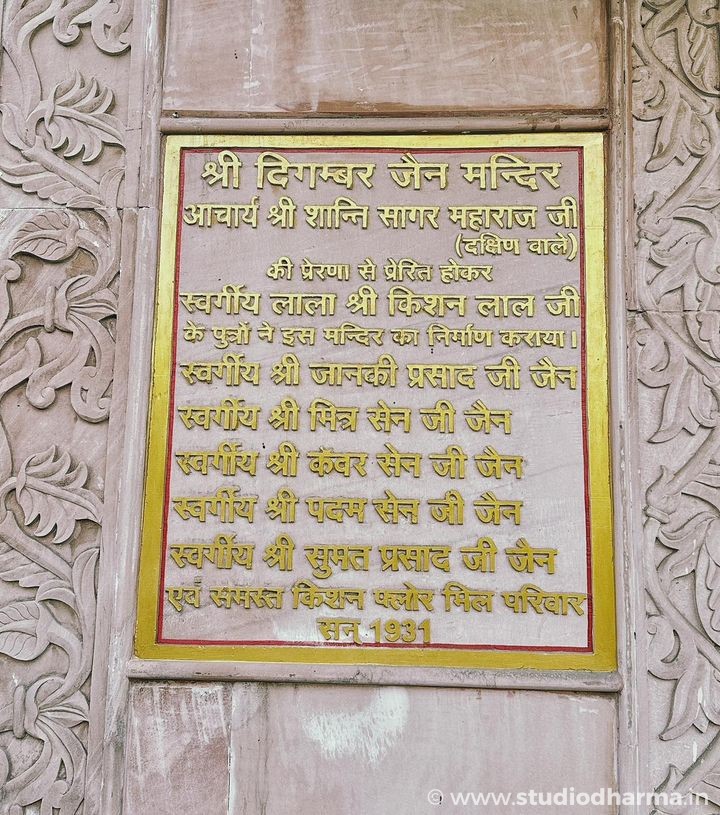 श्री दिगम्बर जैन मन्दिर
आचार्य श्री शान्ति सागर महाराज जी
(दक्षिण वाले)
की प्रेरणा से प्रेरित होकर
स्वर्गीय लाला श्री किशन लाल जी
के पुत्रों ने इस मन्दिर का निर्माण कराया।
स्वर्गीय श्री जानकी प्रसाद जी जैन
स्वर्गीय श्री मित्र सेन जी जैन
स्वर्गीय श्री कॅवर सेन जी जैन
स्वर्गीय श्री पदम सेन जी जैन
स्वर्गीय श्री सुमत प्रसाद जी जैन
एवं समस्त किशन फ्लोर मिल परिवार
सन् 1931
© www.studiodharma.in